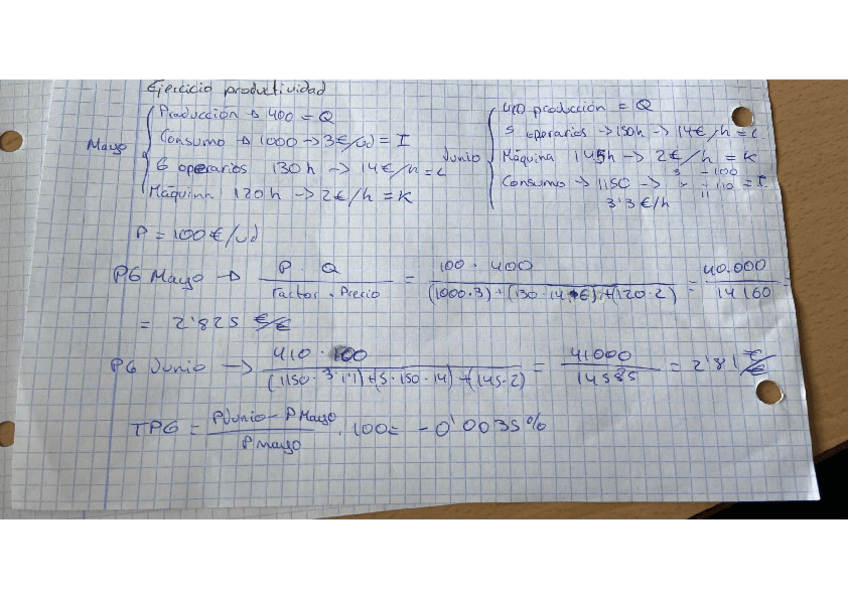 Ejercicio productividad
Mayo
Producción → 400 = Q
Consumo → 1000 → 3€/ud = I
6 operarios 130h → 14€/h = L
Máquina 120h → 2€/h = K
Junio
410 producción = Q
5 operarios → 150h → 14€/h = L
Máquina 145h → 2€/h = K
Consumo → 1150 → 3 - 100 = I
x - 110
3'3€/h
P = 100€/ud
PG Mayo → P · Q / Factor · Precio = 100 · 400 / (1000·3) + (130·14·6) + (120·2) = 40.000 / 14160 =
= 2'825 €/€
PG Junio → 410 · 100 / (1150·3·1'1) + (5·150·14) + (145·2) = 41000 / 14585 = 2'81 €/€
TPG = PJunio - PMayo / PMayo · 100 = -0'0035%